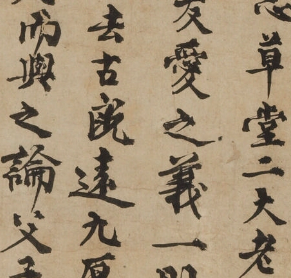 草堂二大老
友愛之義一
去古既遠九原
而與之論父子